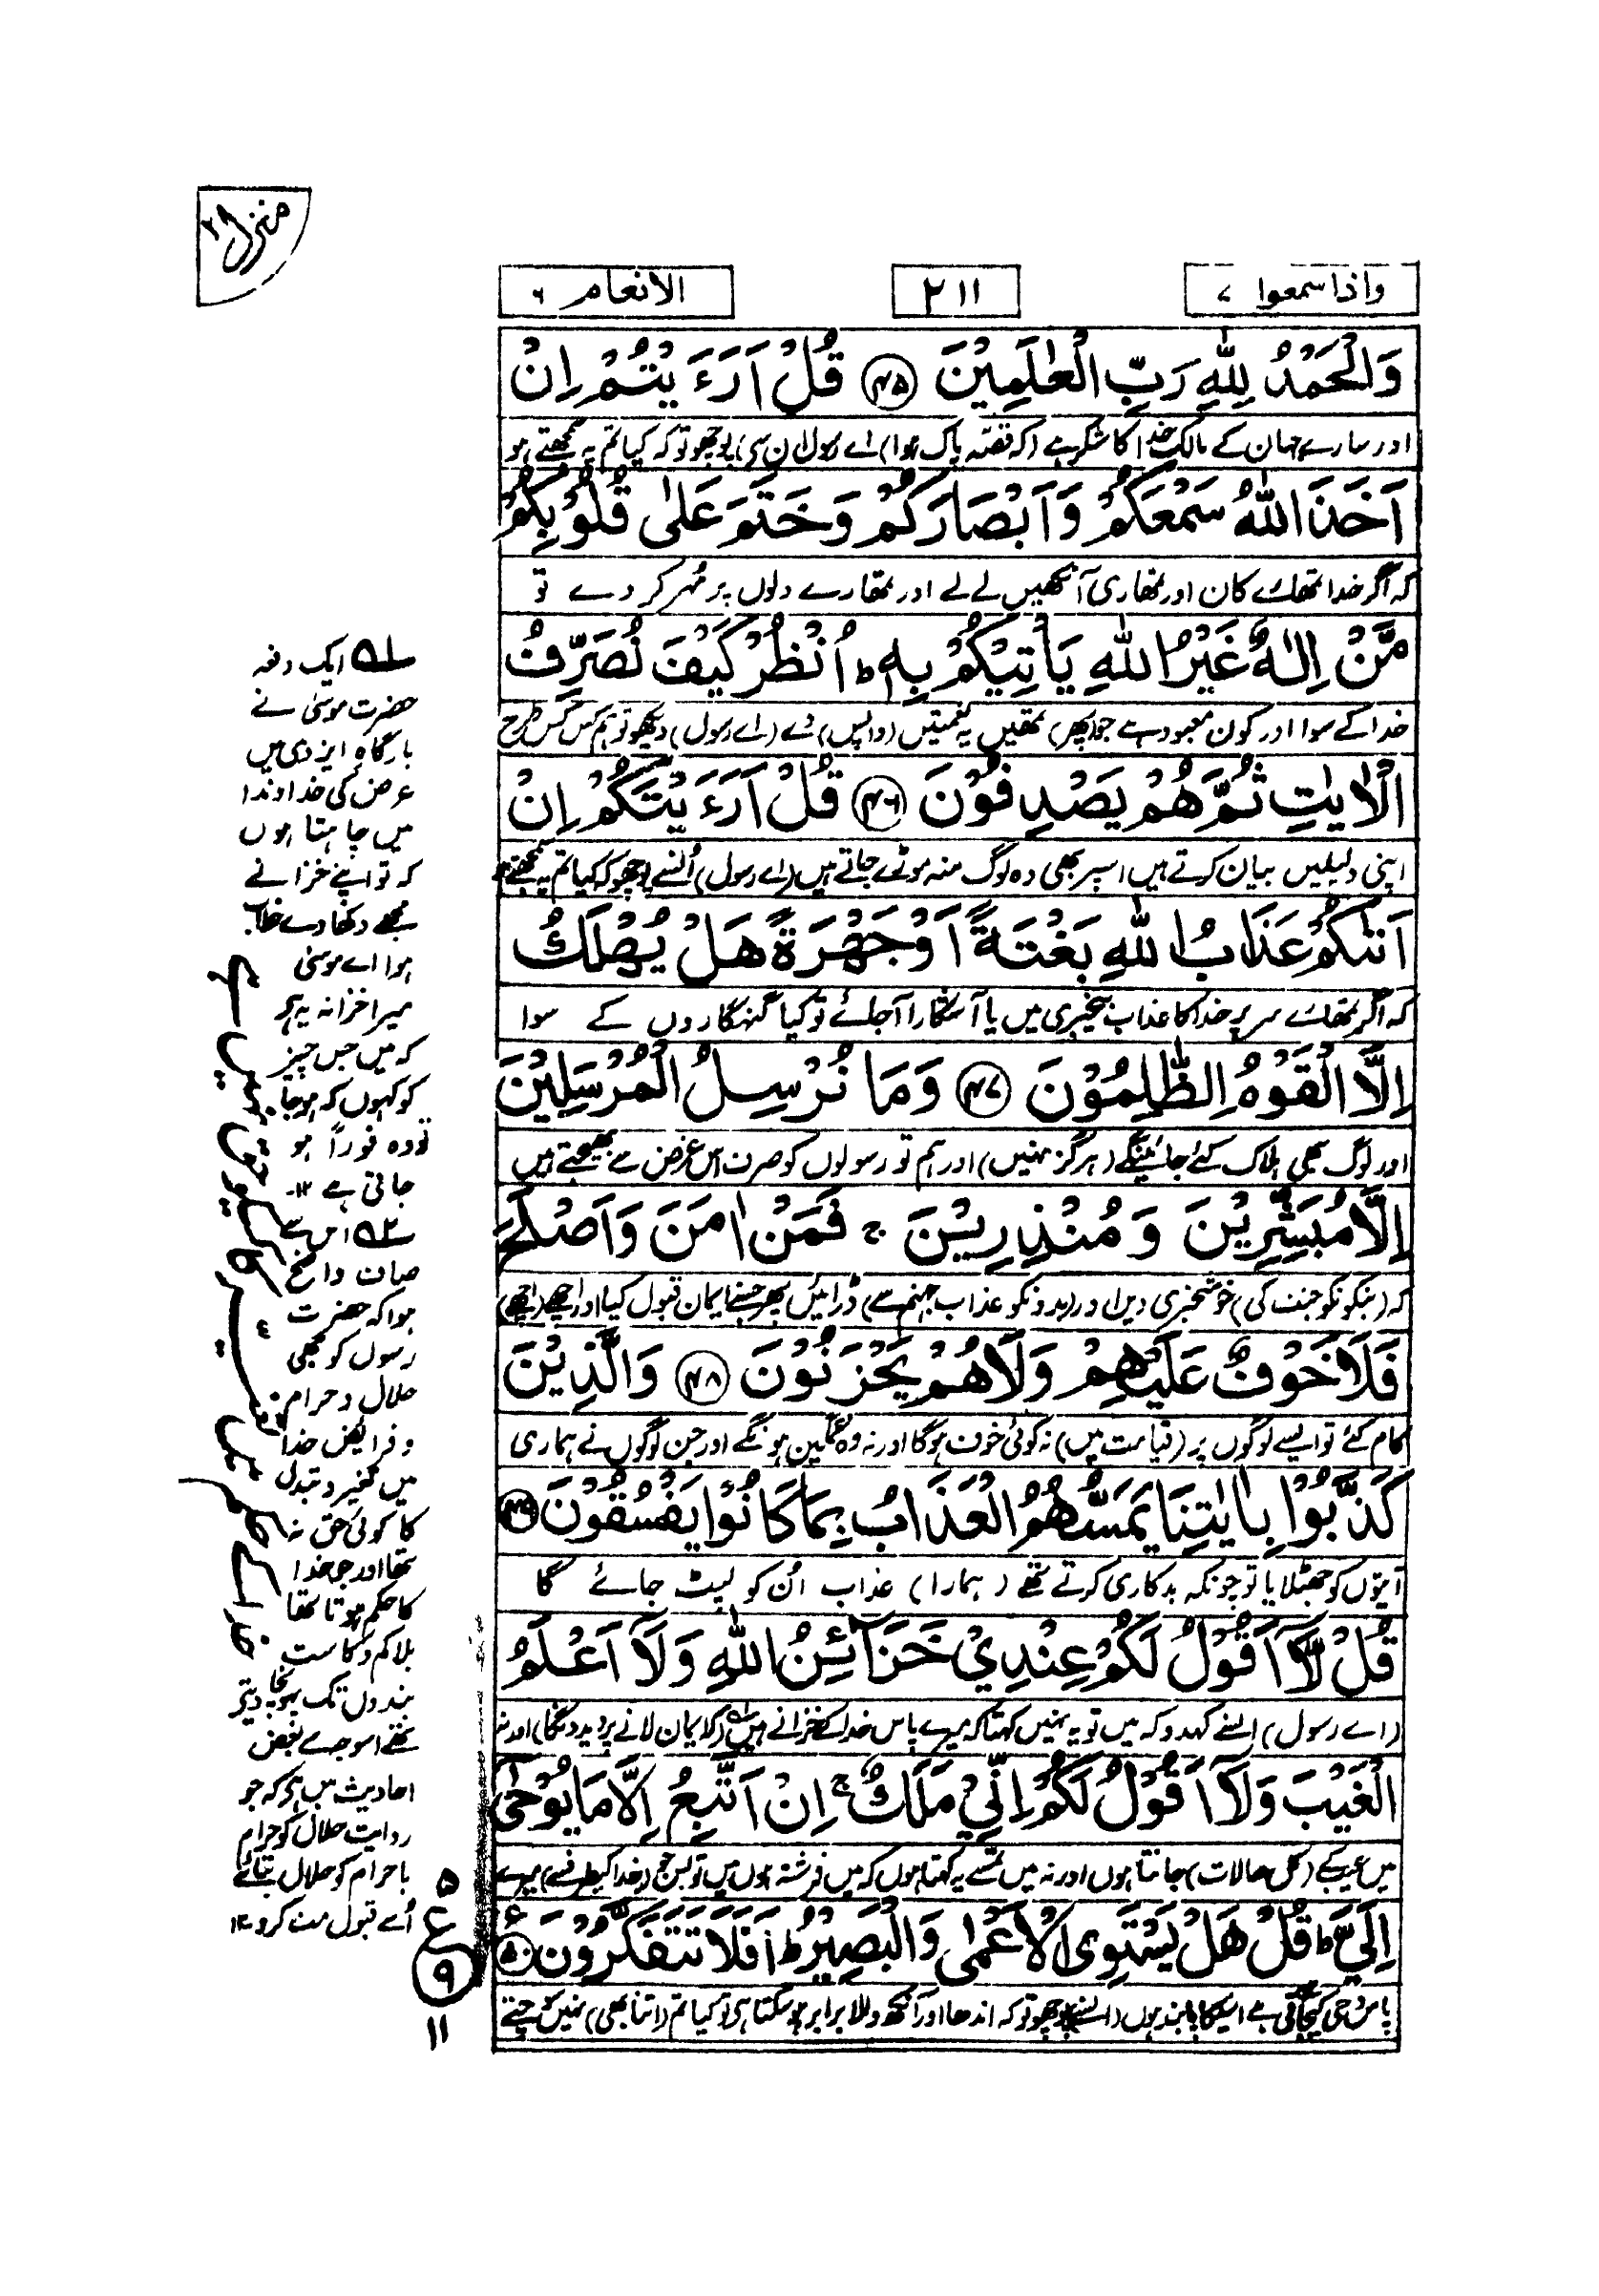 منزل ۲
واذا سمعوا ۷
۲۱۱
الانعام ۶
وَالْحَمْدُ لِلّٰهِ رَبِّ الْعٰلَمِيْنَ ﴿۴۵﴾ قُلْ اَرَءَيْتُمْ اِنْ
اور سارے جہان کے مالک خدا کا شکر ہے (کہ قصّہ پاک ہوا) اے رسول ان سے پوچھو تو کہ کیا تم یہ سمجھتے ہو
اَخَذَ اللّٰهُ سَمْعَكُمْ وَاَبْصَارَكُمْ وَخَتَمَ عَلٰى قُلُوْبِكُمْ
کہ اگر خدا تمھارے کان اور تمھاری آنکھیں لے لے اور تمھارے دلوں پر مُہر کر دے تو
مَّنْ اِلٰهٌ غَيْرُ اللّٰهِ يَاْتِيْكُمْ بِهٖ ؕ اُنْظُرْ كَيْفَ نُصَرِّفُ
خدا کے سوا اور کون معبود ہے جو (پھر) تمھیں یہ نعمتیں (واپس) دے (اے رسول) دیکھو تو ہم کس کس طرح
الْاٰيٰتِ ثُمَّ هُمْ يَصْدِفُوْنَ ﴿۴۶﴾ قُلْ اَرَءَيْتَكُمْ اِنْ
اپنی دلیلیں بیان کرتے ہیں اسپر بھی وہ لوگ منہ موڑے جاتے ہیں (اے رسول) اُنسے پوچھو کہ کیا تم یہ سمجھتے ہو
اَتٰىكُمْ عَذَابُ اللّٰهِ بَغْتَةً اَوْ جَهْرَةً هَلْ يُهْلَكُ
کہ اگر تمھارے سر پر خدا کا عذاب بیخبری میں یا آشکارا آجائے تو کیا گنہگاروں کے سوا
اِلَّا الْقَوْمُ الظّٰلِمُوْنَ ﴿۴۷﴾ وَمَا نُرْسِلُ الْمُرْسَلِيْنَ
اور لوگ بھی ہلاک کئے جائینگے (ہرگز نہیں) اور ہم تو رسولوں کو صرف اس غرض سے بھیجتے ہیں
اِلَّا مُبَشِّرِيْنَ وَمُنْذِرِيْنَ ۚ فَمَنْ اٰمَنَ وَاَصْلَحَ
کہ (نیکونکو جنت کی) خوشخبری دیں اور (بدونکو عذاب جہنم سے) ڈرائیں پھر جسنے ایمان قبول کیا اور اچھے (اچھے)
فَلَا خَوْفٌ عَلَيْهِمْ وَلَا هُمْ يَحْزَنُوْنَ ﴿۴۸﴾ وَالَّذِيْنَ
کام کئے تو ایسے لوگوں پر (قیامت میں) نہ کوئی خوف ہوگا اور نہ وہ غمگین ہونگے اور جن لوگوں نے ہماری
كَذَّبُوْا بِاٰيٰتِنَا يَمَسُّهُمُ الْعَذَابُ بِمَا كَانُوْا يَفْسُقُوْنَ ﴿۴۹﴾
آیتوں کو جھٹلایا تو چونکہ بدکاری کرتے تھے (ہمارا) عذاب اُن کو لپٹ جائے گا
قُلْ لَّاۤ اَقُوْلُ لَكُمْ عِنْدِيْ خَزَآئِنُ اللّٰهِ وَلَاۤ اَعْلَمُ
(اے رسول) اِنسے کہدو کہ میں تو یہ نہیں کہتا کہ میرے پاس خدا کے خزانے ہیں (کہ ایمان لانے پر دیدونگا) اور نہ
الْغَيْبَ وَلَاۤ اَقُوْلُ لَكُمْ اِنِّيْ مَلَكٌ ۚ اِنْ اَتَّبِعُ اِلَّا مَا يُوْحٰۤى
میں غیب کے (کل حالات) جانتا ہوں اور نہ میں تمسے یہ کہتا ہوں کہ میں فرشتہ ہوں میں تو بس جو (خدا کیطرف سے) میرے
اِلَيَّ ؕ قُلْ هَلْ يَسْتَوِى الْاَعْمٰى وَالْبَصِيْرُ ؕ اَفَلَا تَتَفَكَّرُوْنَ ﴿۵۰﴾
پاس وحی کیجاتی ہے اسیکا پابند ہوں (انسے) پوچھو تو کہ اندھا اور آنکھ والا برابر ہو سکتا ہی تو کیا تم (اتنا بھی) نہیں سوچتے
۵۱ ایک دفعہ
حضرت موسیٰ نے
بارگاہِ ایزدی میں
عرض کی خداوندا
میں چاہتا ہوں
کہ تو اپنے خزانے
مجھے دکھا دے خطاب
ہوا اے موسیٰ
میرا خزانہ یہ ہی
کہ میں جس چیز
کو کہوں کہ ہو جا
تو وہ فوراً ہو
جاتی ہے ۱۲۔
۵۲ اس سے
صاف واضح
ہوا کہ حضرت
رسول کو بھی
حلال و حرام
و فرایض خدا
میں تغیر و تبدل
کا کوئی حق نہ
تھا اور جو خدا
کا حکم ہوتا تھا
بلا کم و کاست
بندوں تک پہونچا دیتے
تھے اسوجہ سے بعض
احادیث میں ہی کہ جو
روایت حلال کو حرام
یا حرام کو حلال بتائے
اُسے قبول مت کرو ۱۲
۵
ع
۹
۱۱